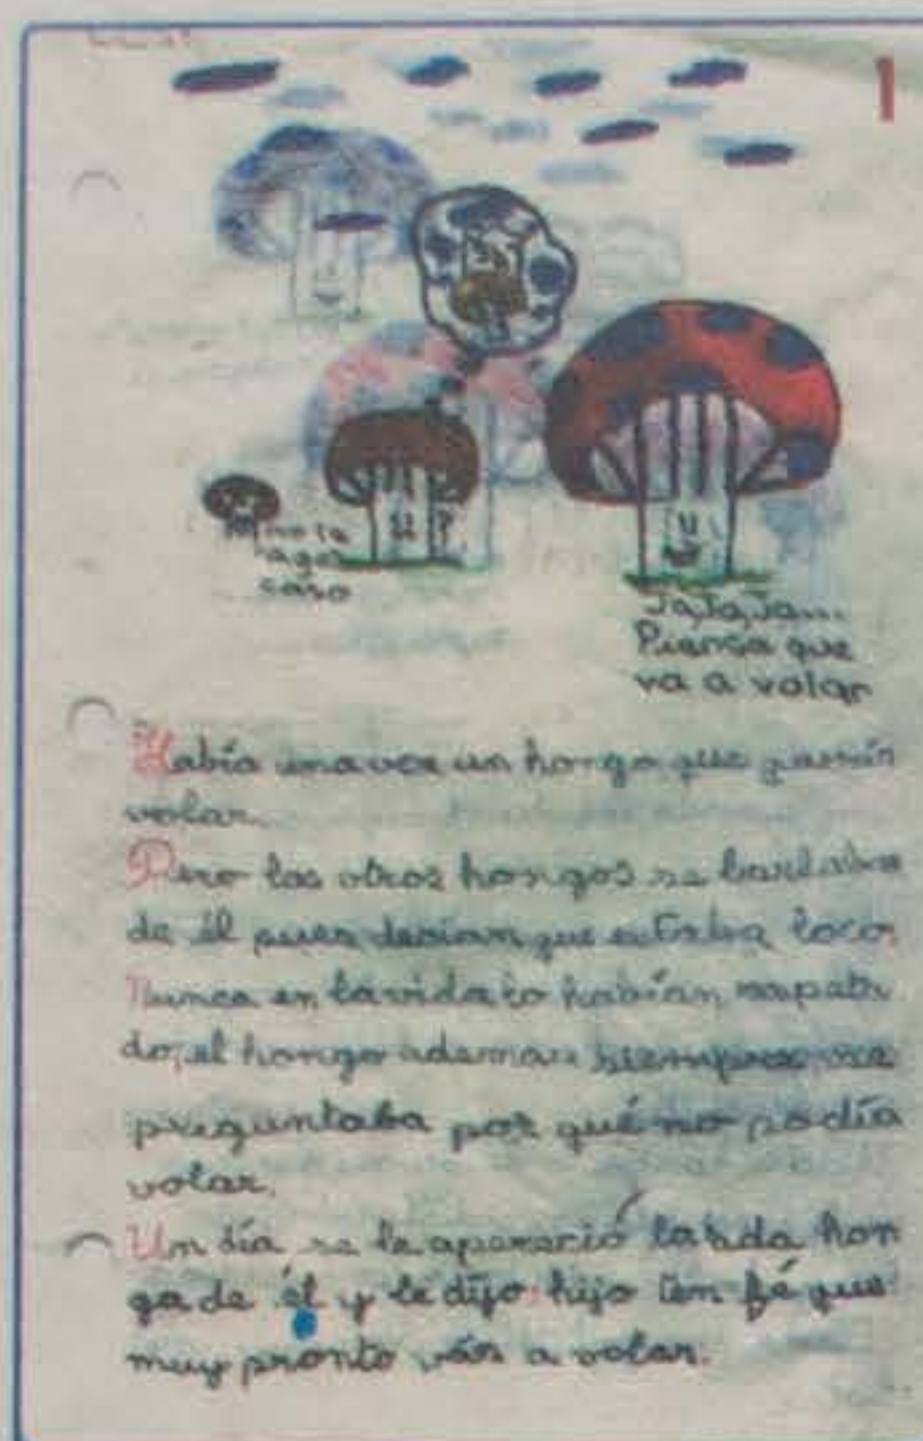 1
no le
hagas
caso
Ja,Ja,Ja...
Piensa que
va a volar
Había una vez un hongo que quería
volar.
Pero los otros hongos se burlaban
de él pues decían que estaba loco,
Nunca en la vida lo habían respeta
do, el hongo ademas siempre se
preguntaba por qué no podía
volar.
Un día se le apereció la hada hon
ga de él y le dijo: hijo ten fé que
muy pronto vás a volar.